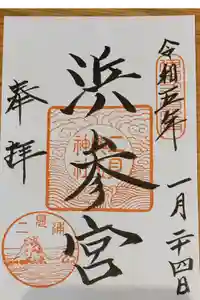 令和五年
一月二十四日
浜参宮
奉拝
二見浦